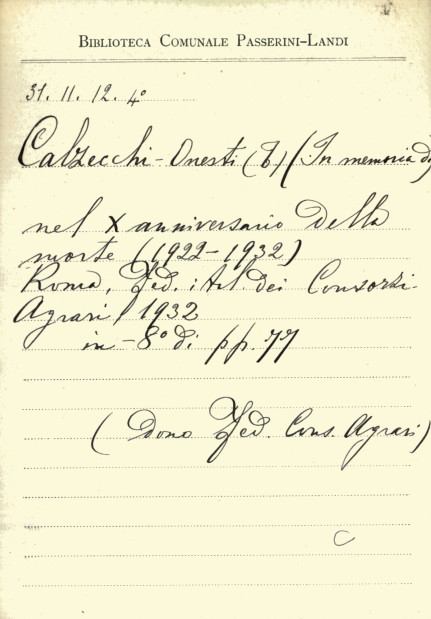 BIBLIOTECA COMUNALE PASSERINI-LANDI
31. 11. 12. 4°
Calzecchi-Onesti (T) (In memoria di)
nel X anniversario della
morte (1922-1932)
Roma, Fed. ital. dei Consorzi
Agrari 1932
in-8° di pp. 77
(Dono Fed. Cons. Agrari)
C